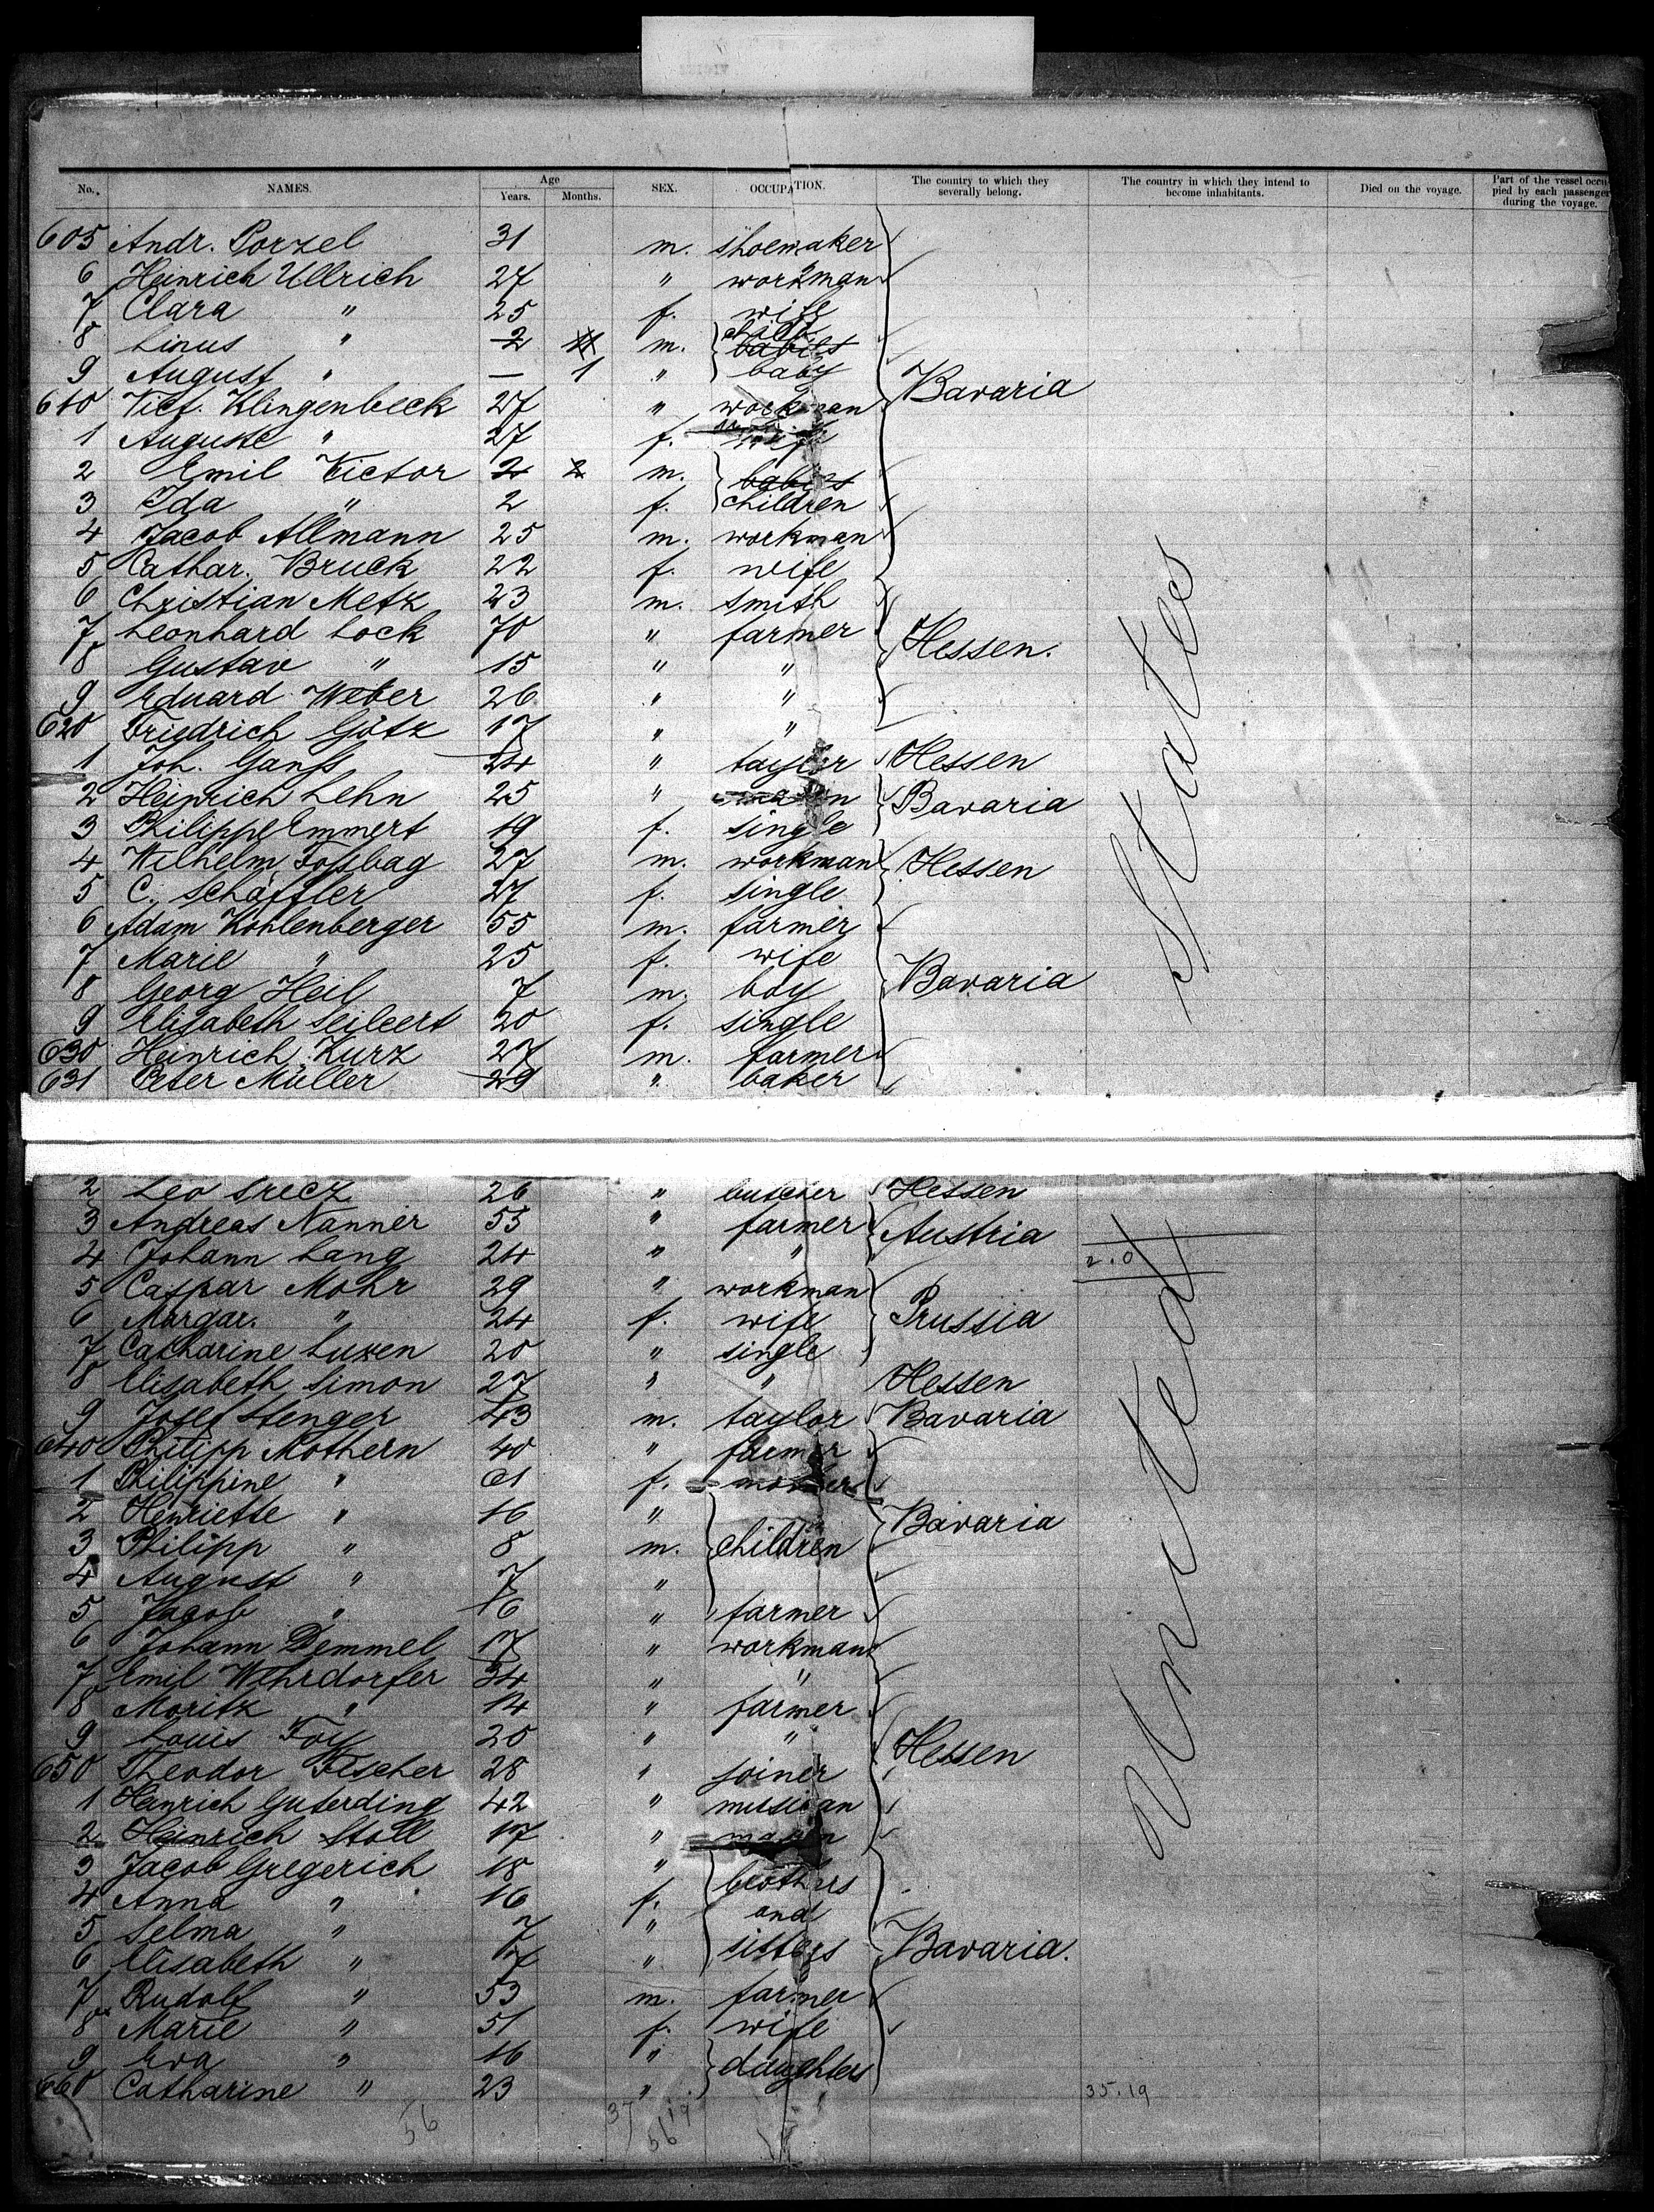 No. NAMES. Age Years. Months. SEX. OCCUPATION. The country to which they severally belong. The country in which they intend to become inhabitants. Died on the voyage. Part of the vessel occupied by each passenger during the voyage.
605 Andr. Porzel 31 m. shoemaker
6 Heinrich Ullrich 27 " workman
7 Clara " 25 f. wife
8 Linus " 2 m. child babies
9 August " — 1 " baby
610 Vict. Klingenbeck 27 " workman Bavaria
1 Auguste " 27 f. wife
2 Emil Victor 2 2 m. babies
3 Ida " 2 f. children
4 Jacob Allmann 25 m. workman
5 Cathar. Bruck 22 f. wife
6 Christian Metz 23 m. smith
7 Leonhard Lock 70 " farmer Hessen.
8 Gustav " 15 " "
9 Eduard Weber 26 " "
620 Friedrich Götz 17 " "
1 Joh. Ganß 24 " taylor Hessen
2 Heinrich Lehn 25 " mason Bavaria
3 Philippe Emmert 19 f. single
4 Wilhelm Foßbag 27 m. workman Hessen
5 C. Schäffler 27 f. single
6 Adam Kohlenberger 55 m. farmer
7 Marie " 25 f. wife Bavaria
8 Georg Heil 7 m. boy
9 Elisabeth Seileert 20 f. single
630 Heinrich Kurz 27 m. farmer
631 Peter Müller 29 " baker
2 Leo 26 " butcher Hessen
3 Andreas Nanner 53 " farmer Austria
4 Johann Lang 24 " "
5 Caspar Mohr 29 " workman
6 Margar. " 24 f. wife Prussia
7 Catharine Luxen 20 " single
8 Elisabeth Simon 27 " " Hessen
9 Josef Stenger 43 m. taylor Bavaria
640 Philipp Mothern 40 " farmer
1 Philippine " 61 f. mother
2 Henriette " 16 " Bavaria
3 Philipp " 8 m. children
4 August " 7 "
5 Jacob " 16 " farmer
6 Johann Demmel 17 " workman
7 Emil Wehrdorfer 34 " "
8 Moritz " 14 " farmer
9 Louis Foy 20 " " Hessen
650 Theodor Fescher 28 " joiner
1 Heinrich Guterding 42 " musician
2 Heinrich Stoll 17 " mason
3 Jacob Gregerich 18 " brothers
4 Anna " 16 f. and
5 Selma " 7 " sisters Bavaria.
6 Elisabeth " 17 "
7 Rudolf " 53 m. farmer
8 Marie " 51 f. wife
9 Eva " 16 " daughters
660 Catharine " 23 "
United States
2.0
35.19
56 37 19
56